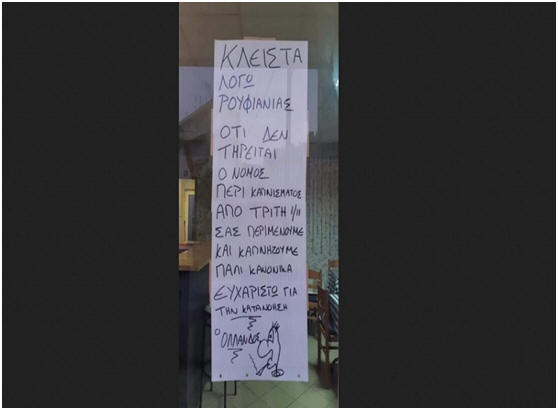 ΚΛΕΙΣΤΑ
ΛΟΓΩ
ΡΟΥΦΙΑΝΙΑΣ
ΟΤΙ ΔΕΝ
ΤΗΡΕΙΤΑΙ
Ο ΝΟΜΟΣ
ΠΕΡΙ ΚΑΠΝΙΣΜΑΤΟΣ
ΑΠΟ ΤΡΙΤΗ 1/11
ΣΑΣ ΠΕΡΙΜΕΝΟΥΜΕ
ΚΑΙ ΚΑΠΝΗΖΟΥΜΕ
ΠΑΛΙ ΚΑΝΟΝΙΚΑ
ΕΥΧΑΡΙΣΤΩ ΓΙΑ
ΤΗΝ ΚΑΤΑΝΟΗΣΗ
Ο ΟΛΛΑΝΔΟΣ